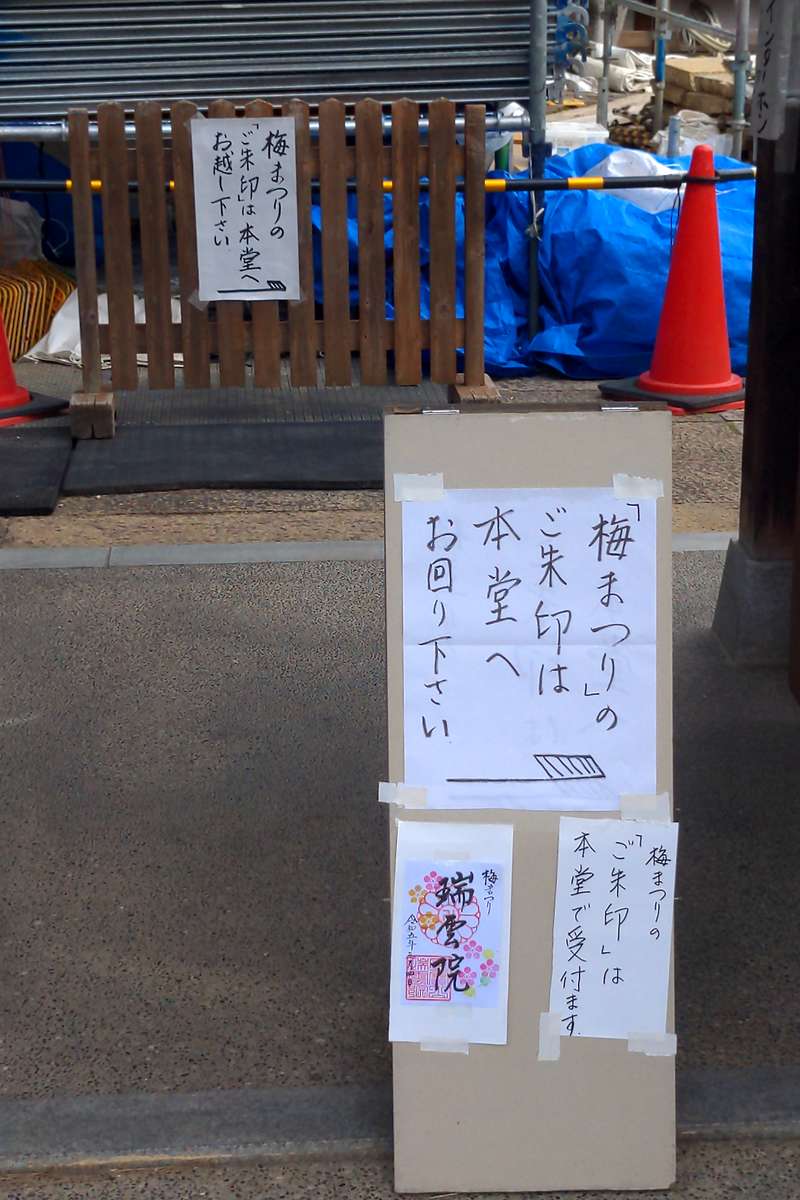 梅まつりの
「ご朱印」は本堂へ
お越し下さい
インターホン
「梅まつり」の
ご朱印は
本堂へ
お回り下さい
梅まつり
瑞雲院
令和五年
梅まつりの
「ご朱印」は
本堂で受付ます